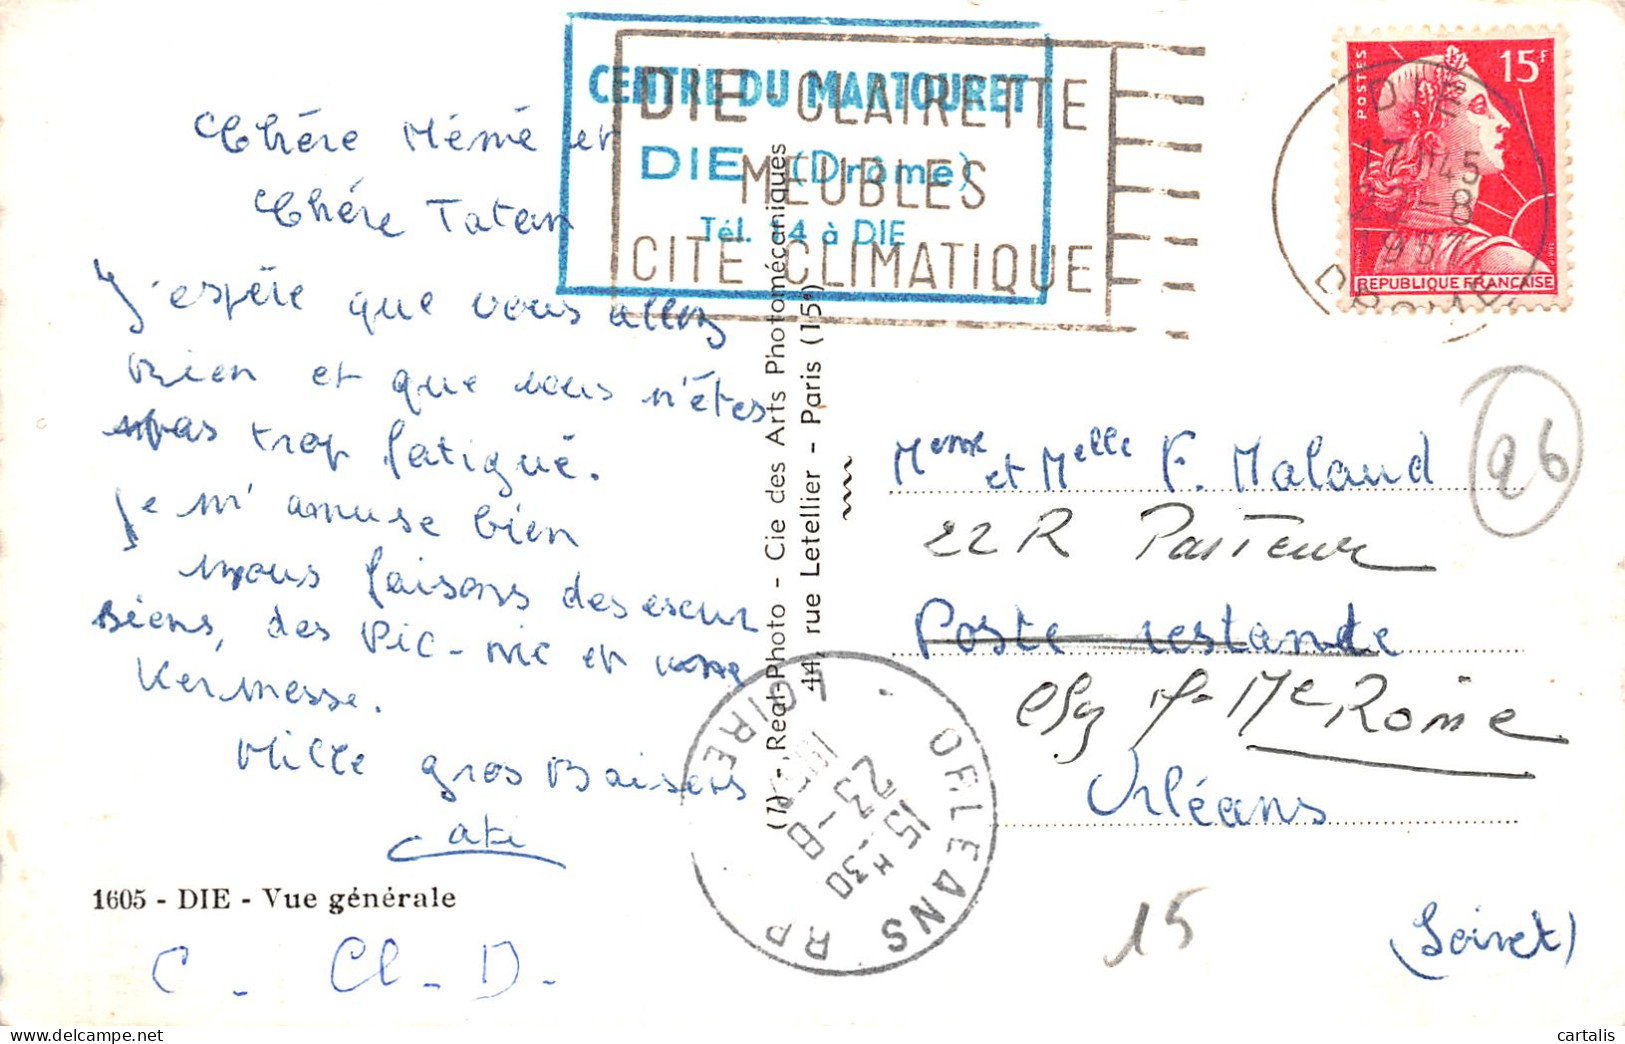 Chére Mémé et
Chére Tatan
J'espére que vous allez
bien et que vous n'êtes
pas trop fatigué.
Je m'amuse bien
nous faisons des excur
siens, des Pic-nic et une
Kermesse.
Mille gros Baisers
Cati
1605 - DIE - Vue générale
C. Cl. D.
CENTRE DU MARTOURET
DIE (Drôme)
Tél. 14 à DIE
DIE CLAIRETTE
MEUBLES
CITE CLIMATIQUE
(1) - Real-Photo - Cie des Arts Photomécaniques
44, rue Letellier - Paris (15e)
DIE
17H45
1957
DROME
POSTES
15F
REPUBLIQUE FRANÇAISE
26
Meme et Melle F. Malaud
22 R Pasteur
Poste restante
Me Rome
Orléans
(Loiret)
15
ORLEANS RP
15H30
23-8
LOIRET
cartalis